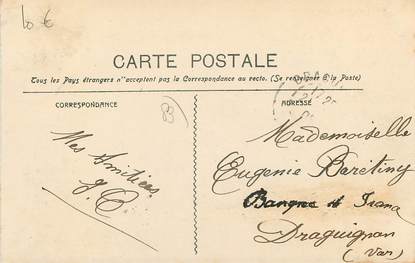 10 €
CARTE POSTALE
Tous les Pays étrangers n'acceptent pas la Correspondance au recto. (Se renseigner à la Poste)
CORRESPONDANCE
ADRESSE
83
Mes Amitiés
J. C.
Mademoiselle
Eugenie Beretiny
Banque
Draguignan
(Var)